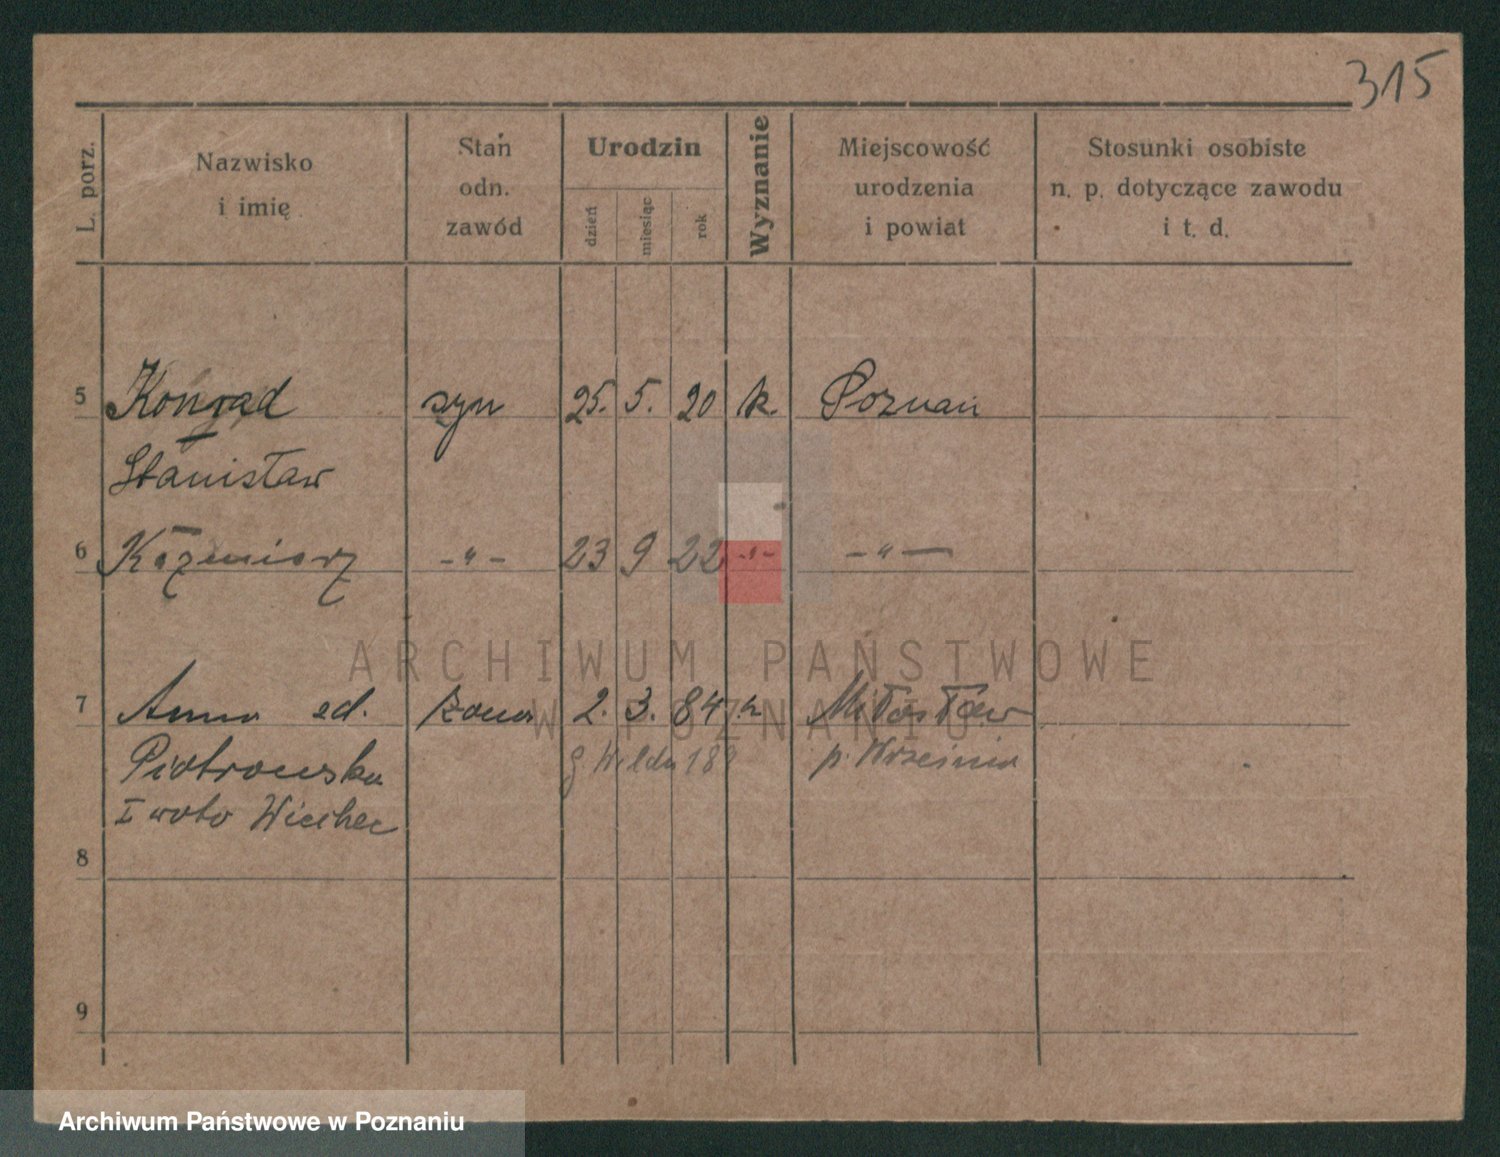 315
L. porz.
Nazwisko
i imię
Stan
odn.
zawód
Urodzin
dzień
miesiąc
rok
Wyznanie
Miejscowość
urodzenia
i powiat
Stosunki osobiste
n. p. dotyczące zawodu
i t. d.
5 Konrad syn 25. 5. 20 k. Poznań
Stanisław
6 Kaźmierz -"- 23 9 22 -"- -"-
ARCHIWUM PAŃSTWOWE
W POZNANIU
7 Anna żona 2. 3. 84 k Miłosław
Piotrowska g Wilda p. Września
I voto Wiechec
8
9
Archiwum Państwowe w Poznaniu